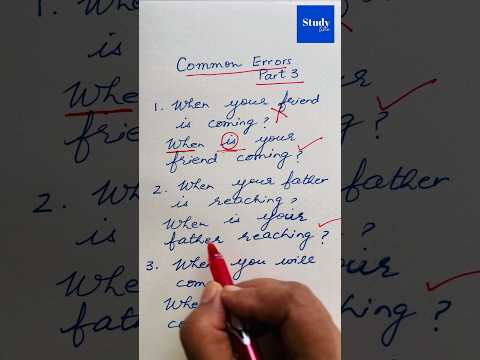 Study
Common Errors
Part 3
1. When your friend
is coming?
When is your
friend coming?
2. When your father
is reaching?
When is your
father reaching?
3. When you will
com
Whe